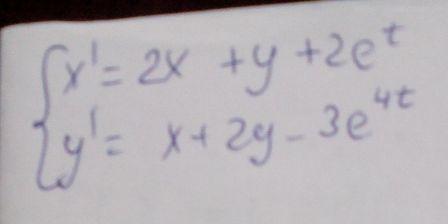 x' = 2x + y + 2e^t
y' = x + 2y - 3e^{4t}